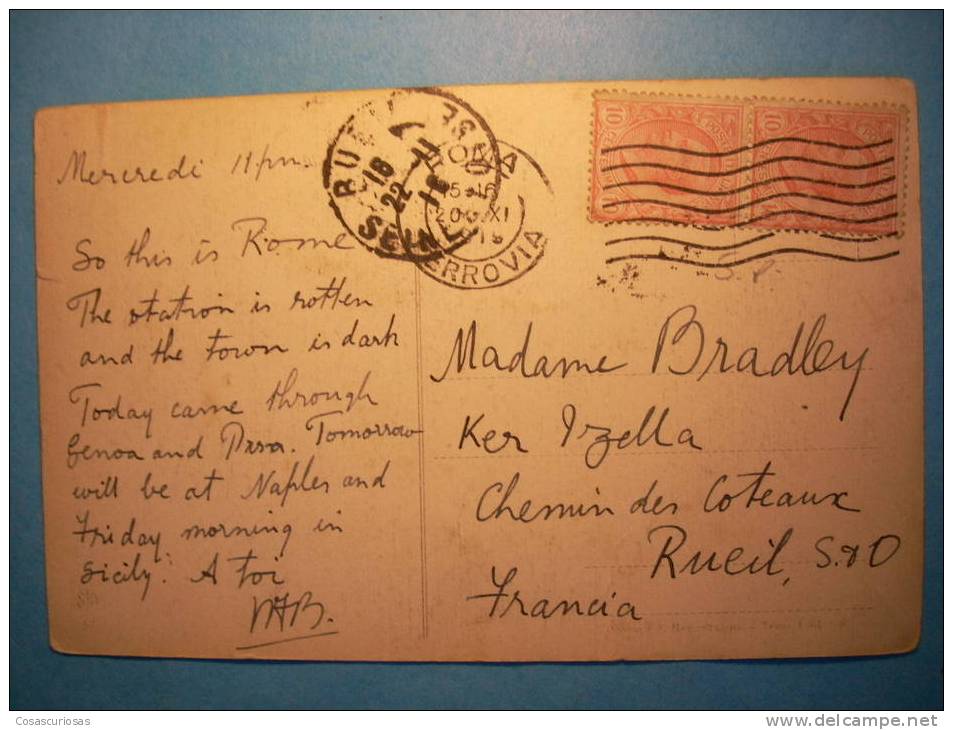 Mercredi 11 pm
So this is Rome
The station is rotten
and the town is dark
Today came through
Genoa and Pisa. Tomorrow
will be at Naples and
Friday morning in
Sicily. A toi
ROMA
15-16
20 XI
FERROVIA
SEINE
22
10
10
Madame Bradley
Ker Izella
Chemin des Coteaux
Rueil, S&O
Francia
Cosascuriosas
www.delcampe.net